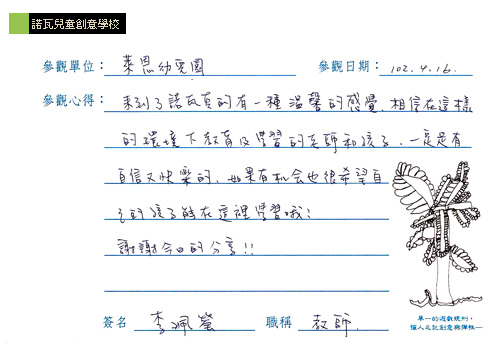 諾瓦兒童創意學校
參觀單位： 萊恩幼兒園 參觀日期： 102.4.16.
參觀心得： 來到了諾瓦真的有一種溫馨的感覺，相信在這樣
的環境下教育及學習的老師和孩子，一定是有
自信又快樂的，如果有机会也很希望自
己的孩子能在這裡學習哦！
謝謝今日的分享！！
簽名 李珮瑩 職稱 教師
單一的遊戲規則，
讓人忘記創意與彈性—